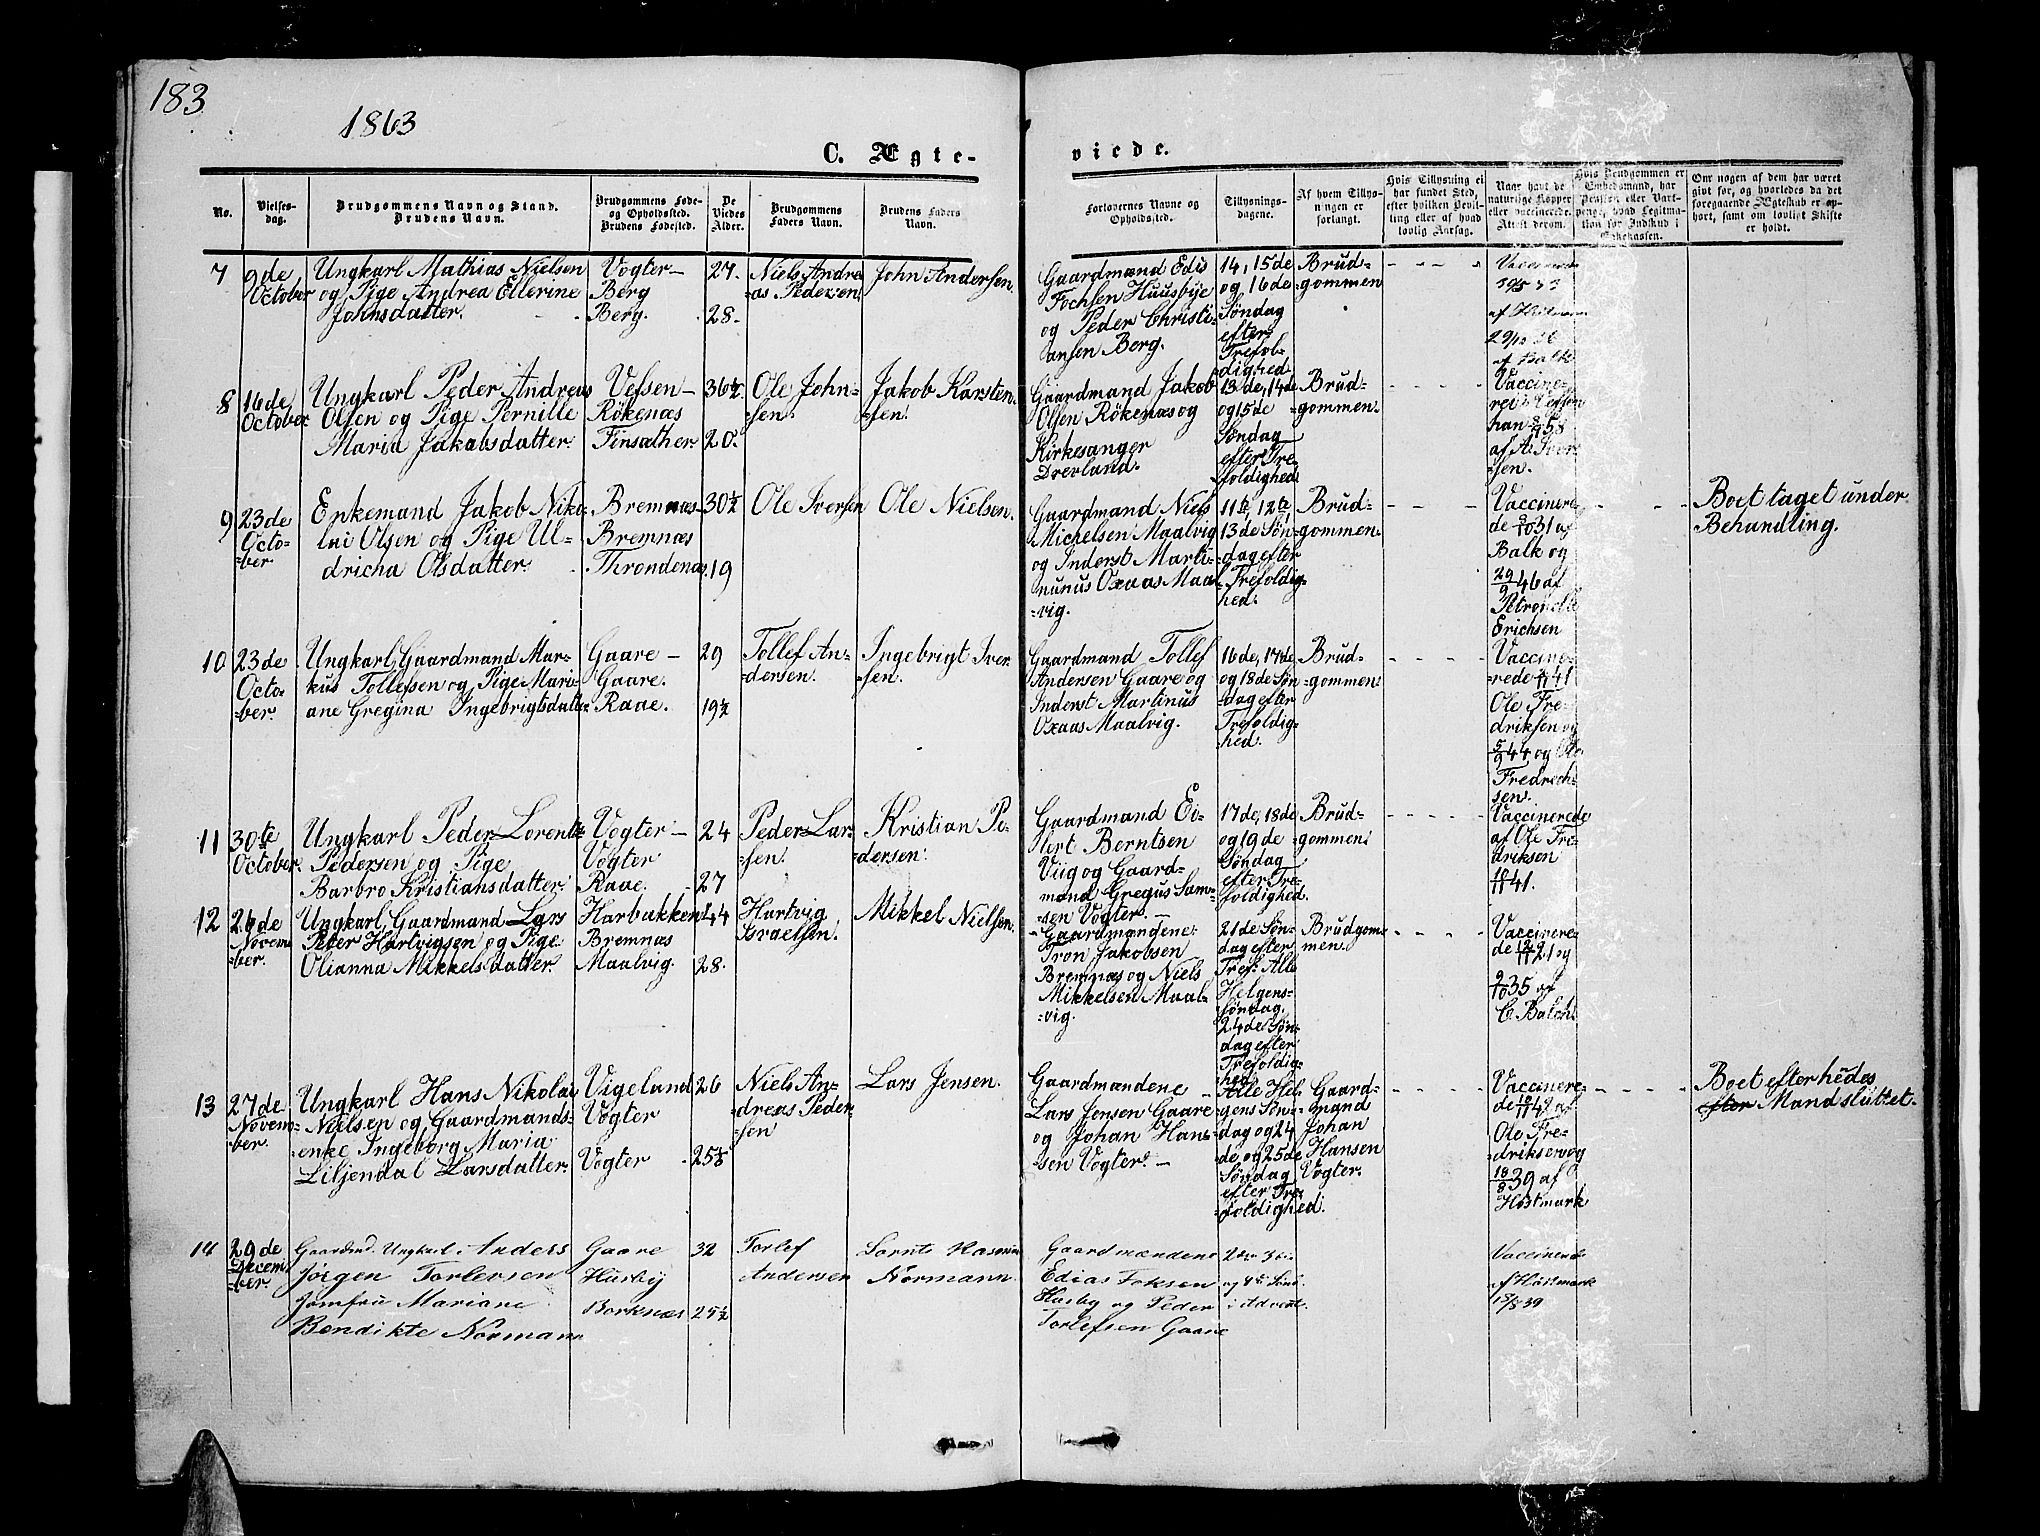 183
1863
C. Ægte-
viede.
No.
Vielses-
dag.
Brudgommens Navn og Stand.
Brudens Navn.
Brudgommens Føde-
og Opholdssted.
Brudens Fødested.
De
Viedes
Alder.
Brudgommens
Faders Navn.
Brudens Faders
Navn.
Forlovernes Navne og
Opholdssted.
Tillysnings-
dagene.
Af hvem Tillys-
ningen er
forlangt.
Hvis Tillysning ei
har fundet Sted,
efter hvilken Bevil-
ling eller af hvad
lovlig Aarsag.
Naar havt de
naturlige Kopper
eller vaccinerede.
Attest derom.
Hvis Brudgommen er
Embedsmand, har
Pension eller Vart-
penge, hvad Legitima-
tion for Indskud i
Enkekassen.
Om nogen af dem har været
givt før, og hvorledes da det
foregaaende Ægteskab er op-
hørt, samt om lovligt Skifte
er holdt.
7
9de
October
Ungkarl Mathias Nielsen
og Pige Andrea Ellerine
Johnsdatter.
Vogter-
Berg
Berg.
27.
28.
Niels Andre
=as Pedersen
John Andersen.
Gaardmand Edis
Fochsen Huusbye
og Peder Christi-
ansen Berg.
14, 15de
og 16de
Søndag
efter
Trefol-
dighed
Brud=
=gommen
af
8
16de
October
Ungkarl Peder Andreas
Olsen og Pige Pernille
Maria Jakobsdatter.
Vefsen-
Rökenæs
Finsæther
36½
20.
Ole John=
=sen.
Jakob Karsten
=sen.
Gaardmand Jakob
Olsen Rökenæs og
Kirkesanger
Drevland.
13de, 14de
og 15de
Søndag
efter Tre-
foldighed
Brud=
=gommen.
Vaccine=
af
=sen.
9
23de
Octo=
=ber.
Enkemand Jakob Niko-
lai Olsen og Pige Ul=
dricha Olsdatter.
Bremnæs-
Bremnæs
Throndenas.
30½
19
Ole Iversen
Ole Nielsen.
Gaardmand Niels
Michelsen Maalvig
og Inderst Marti-
nunus Oxaas Maal
=vig.
11te, 12te
13de Søn=
=dag efter
Trefoldig=
hed.
Brud=
=gommen
Vaccinere
de 9/10 31 af
Balk og
29/9 46 af
Erichsen
Boet taget under
Behandling.
10
23de
Octo=
=ber.
Ungkarl Gaardmand Mar-
kus Tollefsen og Pige Mari-
ane Gregina Ingebrigtsdatte=
Gaare-
Gaare.
Raae.
29
19½
Tollef An=
=dersen.
Ingebrigt Iver
=sen.
Gaardmand Tollef
Andersen Gaare og
Inderst Martinus
Oxaas Maalvig.
16de, 17de
og 18de Søn
=dag efter
Trefoldig=
=hed.
Brud=
=gommen.
Vaccine=
=rede
Ole Fre=
driksen og
5/9 44 og Ole
Fredrech=
sen.
11
30te
October.
Ungkarl Peder Lorentz
Pedersen og Pige
Barbro Kristiansdatter.
Vogter-
Vogter
Raae.
24
27
Peder Lar=
=sen.
Kristian Pe=
=dersen.
Gaardmand Ei=
lert Berntsen
Viig og Gaard=
mand Gregus Sam=
=sen Vogter.-
17de, 18de
og 19de
Søndag
efter Tre-
foldighed.
Brud=
=gommen.
Vaccinerede
af Ole Fre=
driksen
12
26de
Novem
ber.
Ungkarl Gaardmand Lars
Peter Hartvigsen og Pige
Olianna Mikkelsdatter.
Harbakken
Bremnæs
Maalvig.
44
28.
Hartvig
Israelsen.
Mikkel Nielsen.
Gaardmændene
Tron Jakobsen
Bremnæs og Niels
Mikkelsen Maal=
=vig.
21de Søn=
dag efter
Tref. Alle
Helgens=
=søndag.
24de Søn=
dag efter
Trefoldig=
hed
Brudgom=
men.
Vaccinere=
de 12/11 21 og
9/10 35 af
C. Balch
13
27de
Novem=
=ber.
Ungkarl Hans Nikolai
Nielsen og Gaardmands=
enke Ingeborg Maria
Liljendal Larsdatter.
Vigeland
Vogter
Vogter
26
Niels An=
dreas Peder
=sen
Lars Jensen.
Gaardmændene
Lars Jensen Gaare
og Johan Han=
sen Vogter.-
Alle Hel
gens Søn=
dag og 24
de og 25de
Søndag
efter Tre-
foldighed.
Gaard=
mand
Johan
Hansen
Vogter.
Vaccinere=
de 12/11 42 af
Ole Fre=
driksen og
18/8 39 af
Høstmark
Boet efter hedes
efter Mand sluttet.
14
29de
Decem
ber.
Gaardmd. Ungkarl Anders
Jørgen Torlefsen
Jomfru Mariane
Bendikte Normann
Gaare
Husby
Borknæs
32
25½
Torlef
Andersen
Normann.
Gaardmændene
Edias Foksen
Husby og Peder
Torlefsen Gaare
og 4de Sønd.
i Advent.
Vaccinerede
af Høstmark
18/8 39